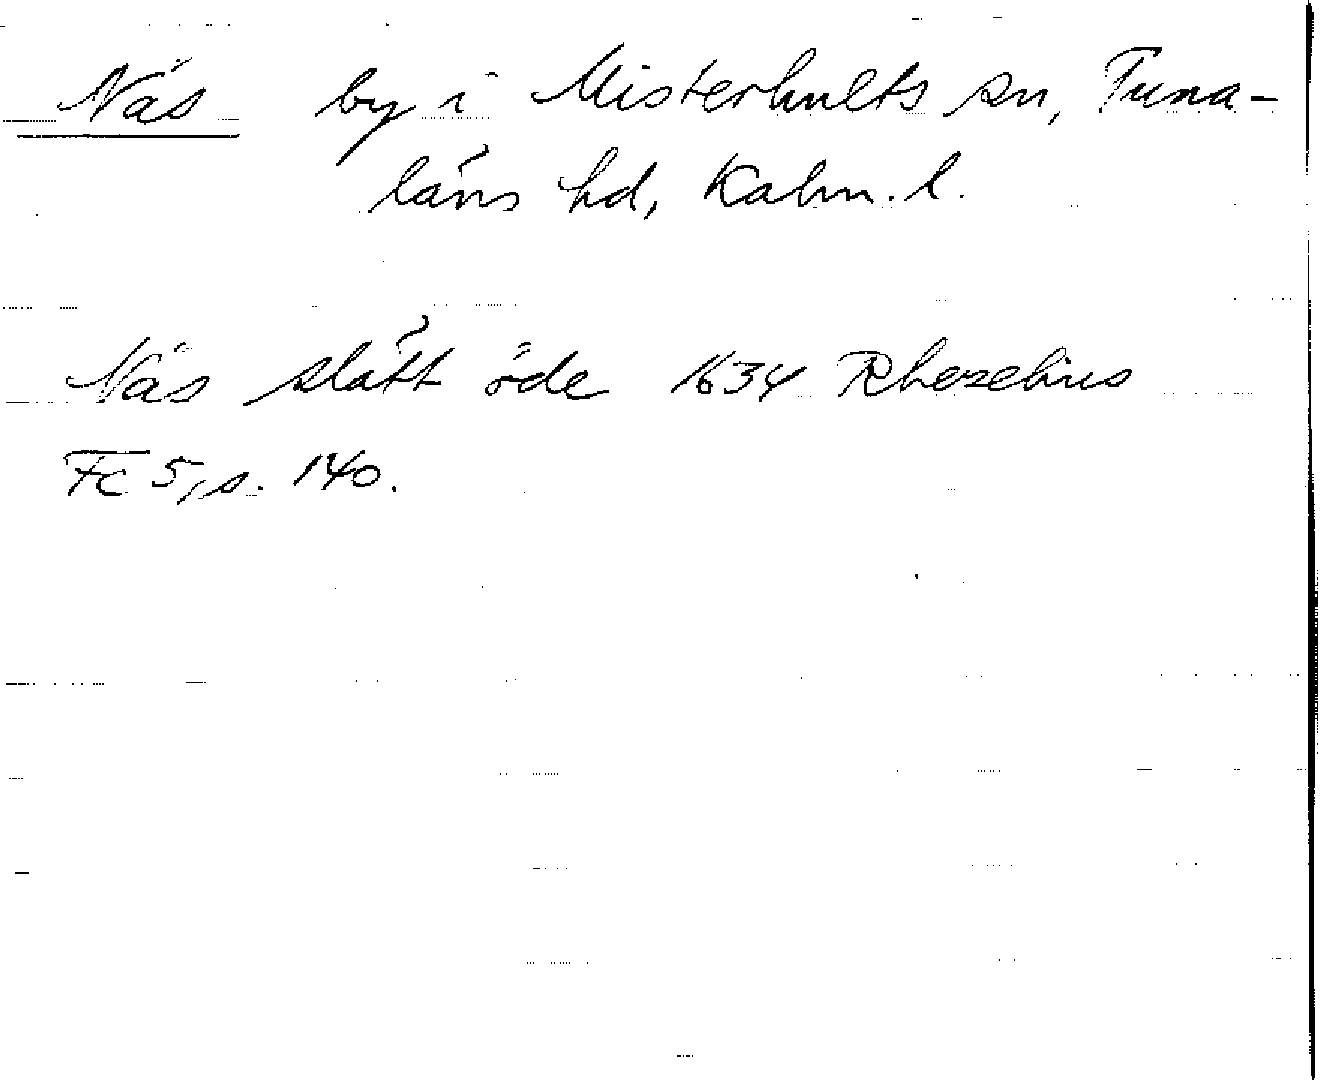 Näs by i Misterhults sn, Tuna-
läns hd, Kalm. l.
Näs slätt öde 1634 Rhezelius
Fc 5, s. 140.